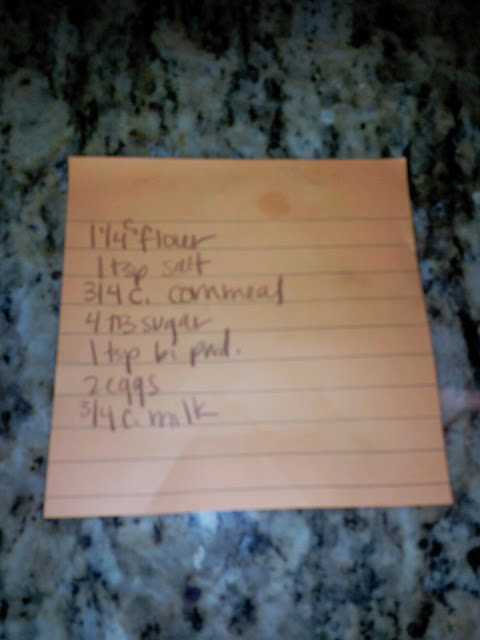 1 1/4 c flour
1 tsp salt
3/4 c. cornmeal
4 TB sugar
1 tsp b. pwd.
2 eggs
3/4 c. milk